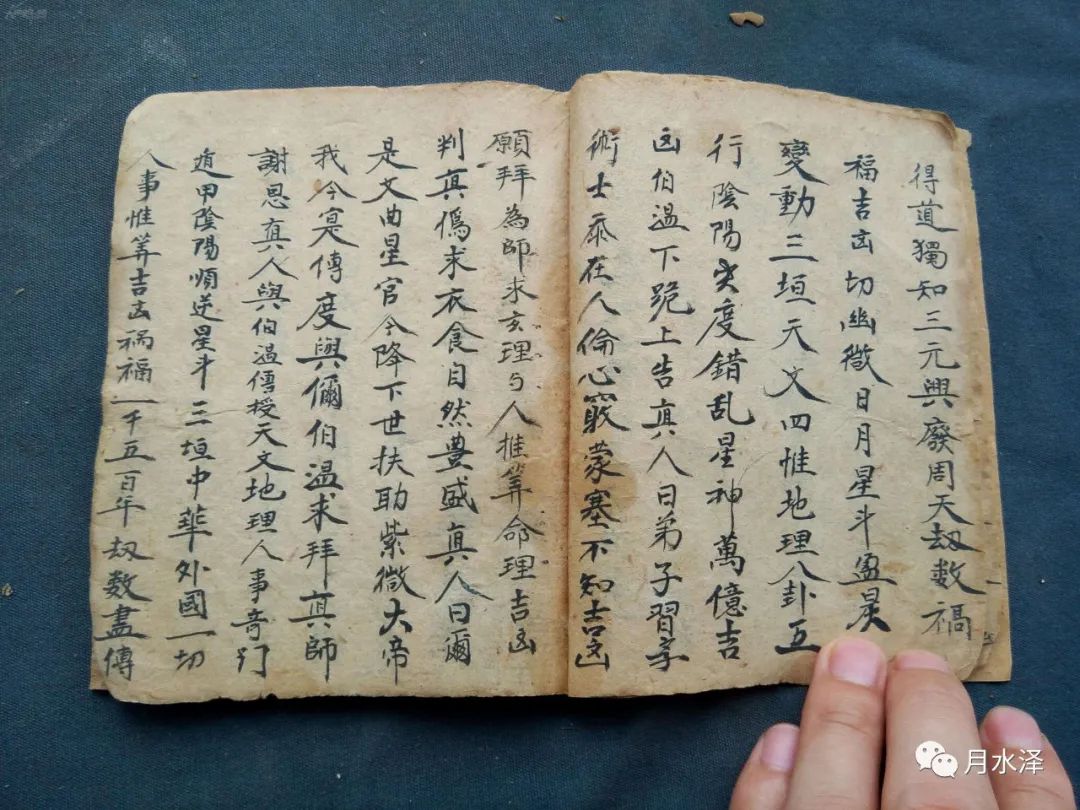 得道獨知三元興廢周天刼数禍
福吉凶切幽微日月星斗盈昃
變動三垣天文四惟地理八卦五
行陰陽失度錯乱星神萬億吉
凶伯温下跪上告真人曰弟子習学
術士忝在人倫心竅蒙塞不知吉凶
願拜為師求玄理与人推筭命理吉凶
判真偽求衣食自然豊盛真人曰爾
是文曲星官令降下世扶助紫微大帝
我今寔傳度與儞伯温求拜真師
謝恩真人與伯温傳授天文地理人事奇门
遁甲陰陽順逆星斗三垣中華外國一切
人事惟筭吉凶禍福一千五百年刼数盡傳
月水泽